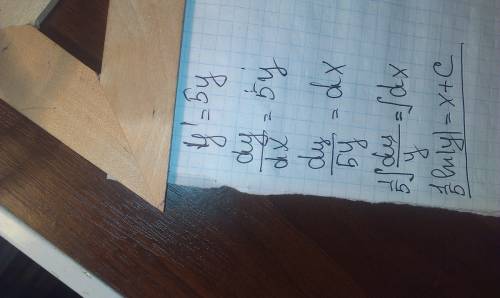 y' = 5y
dy/dx = 5y
dy/5y = dx
1/5 ∫ dy/y = ∫ dx
1/5 ln|y| = x + C